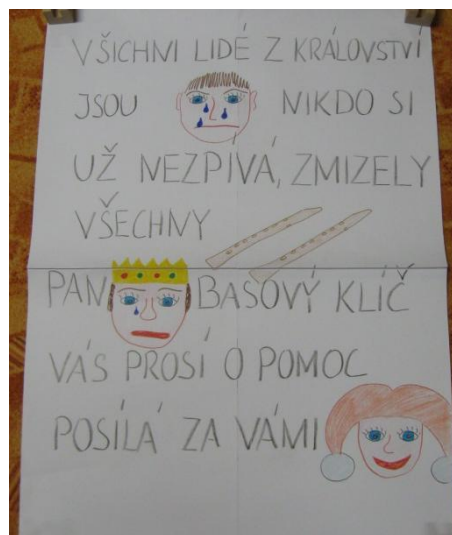 VŠICHNI LIDÉ Z KRÁLOVSTVÍ
JSOU NIKDO SI
UŽ NEZPÍVÁ, ZMIZELY
VŠECHNY
PAN BASOVÝ KLÍČ
VÁS PROSÍ O POMOC
POSÍLÁ ZA VÁMI